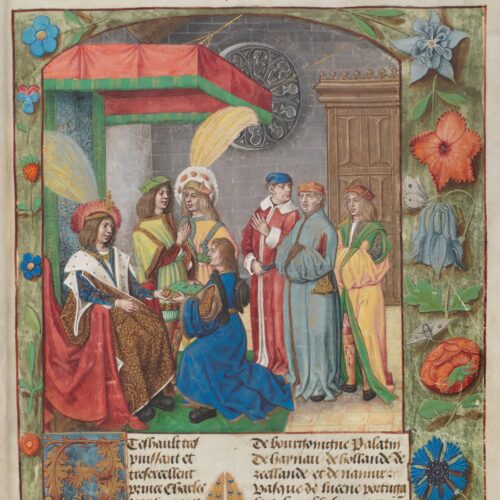 Treshault tres
puissant et
tresexcellent
prince Charles
De bourgoingne Palatin
De haynau de hollande de
zeellande et de namur
Vasque de lucene portuga